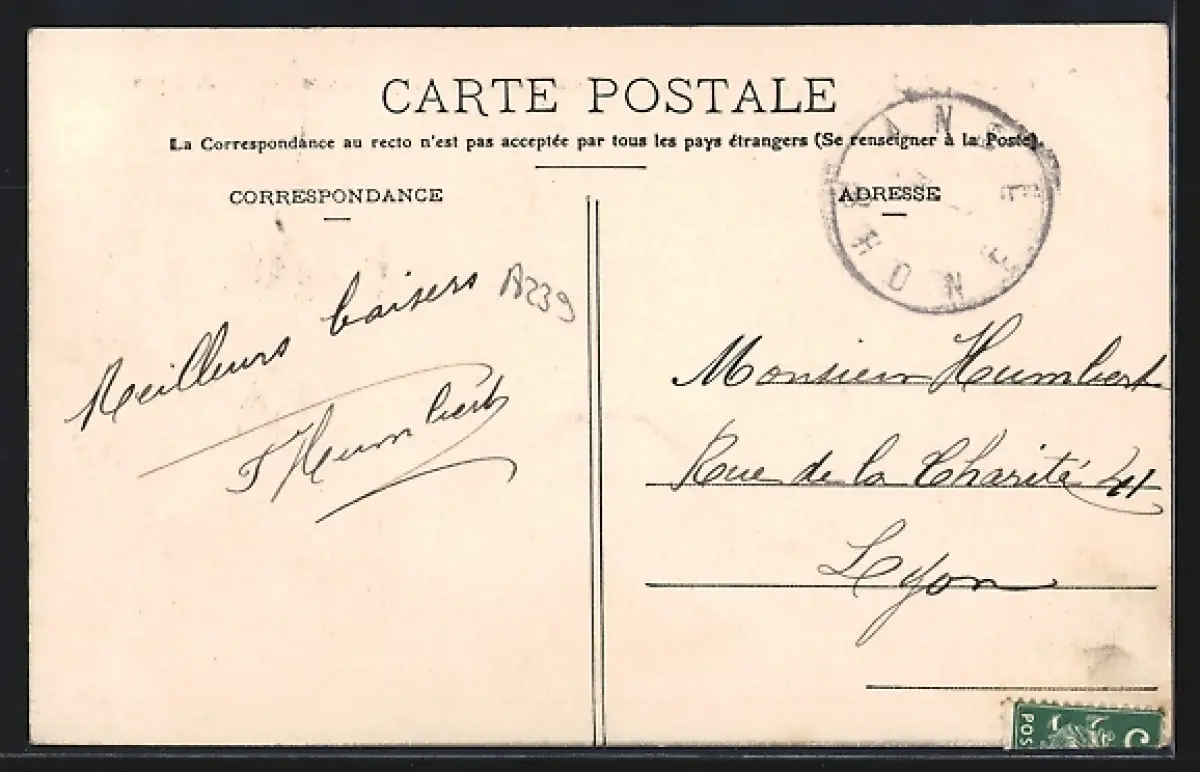 CARTE POSTALE
La Correspondance au recto n'est pas acceptée par tous les pays étrangers (Se renseigner à la Poste).
CORRESPONDANCE
Meilleurs baisers
A239
F Humbert
ADRESSE
RHONE
Monsieur Humbert
Rue de la Charité 41
Lyon
POS